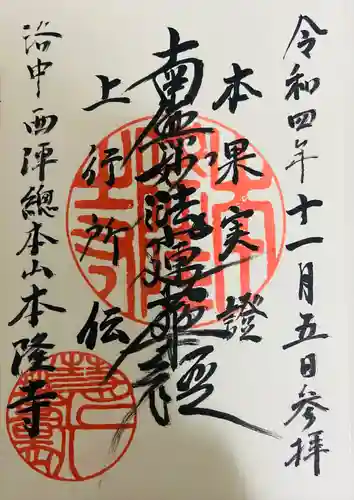 令和四年十一月五日参拝
本果実證
南無妙法蓮華経
上行所伝
洛中西陣總本山本隆寺